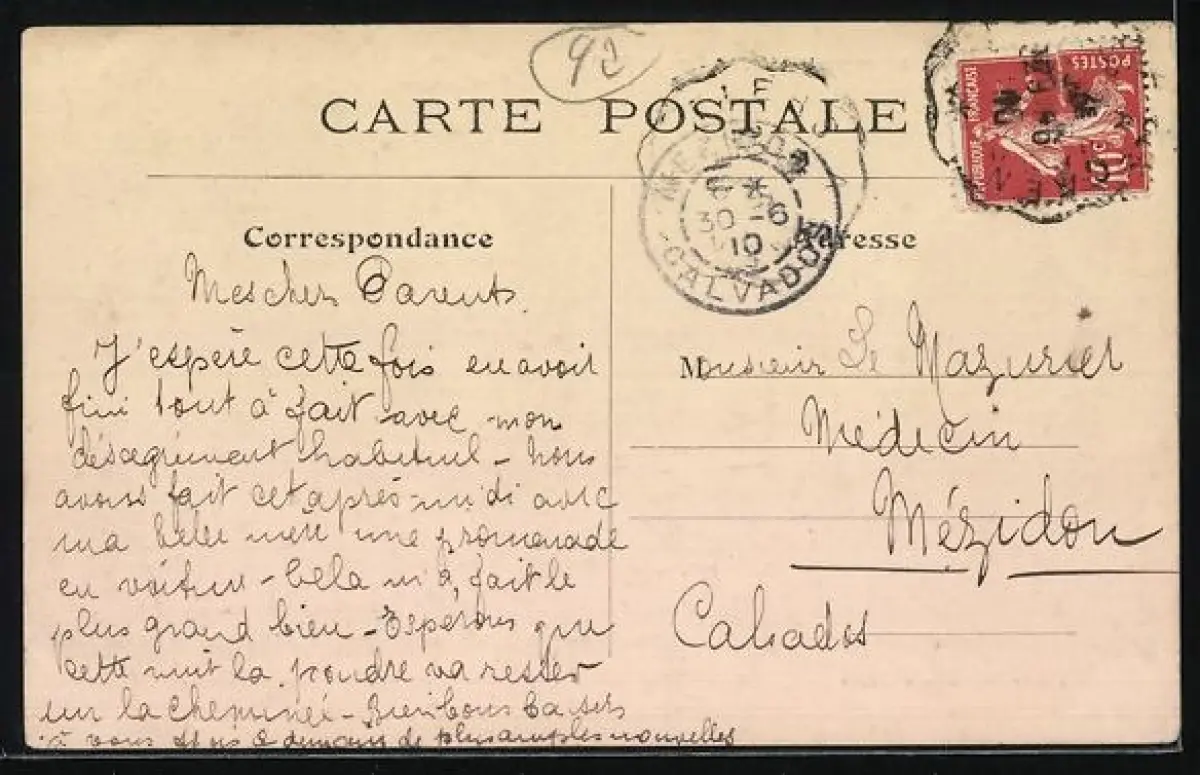 92
CARTE POSTALE
RÉPUBLIQUE FRANÇAISE
POSTES
10c
MEZIDON
30 -6
10
CALVADOS
Correspondance
Adresse
Mes chers Parents.
J'espère cette fois en avoir
fini tout à fait avec mon
désagrément habituel - Nous
avons fait cet après-midi avec
ma belle mère une promenade
en voiture - Cela m'a fait le
plus grand bien - Espérons que
cette nuit la poudre va rester
sur la cheminée - Bien bons baisers
à vous et à demain de plus amples nouvelles
Monsieur Le Mazurier
Médecin
Mézidon
Calvados